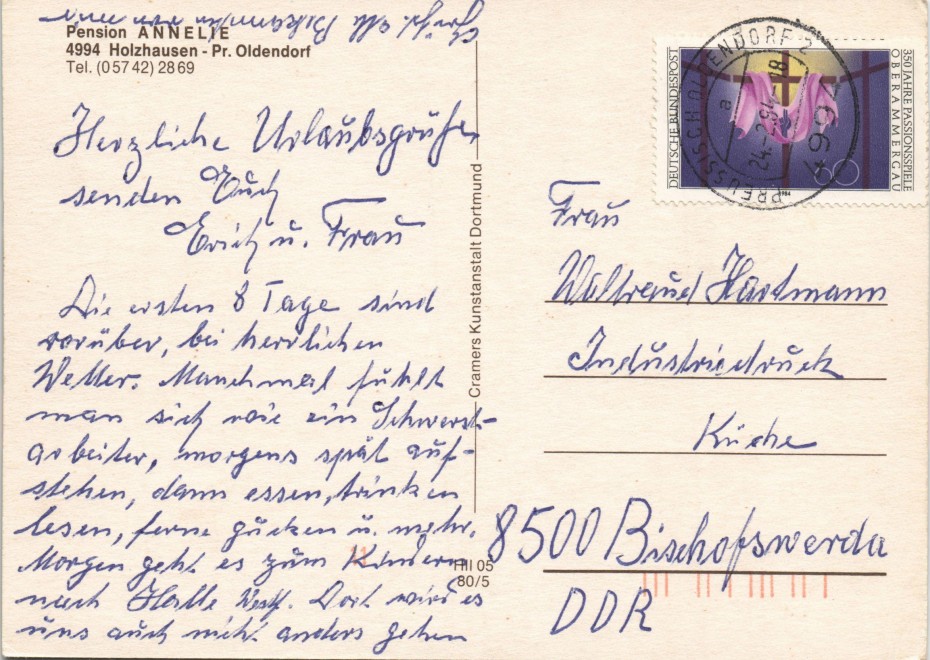 Pension ANNELIE
4994 Holzhausen - Pr. Oldendorf
Tel. (0 57 42) 28 69
Herzliche Urlaubsgrüße
senden Euch
Erich u. Frau
Die ersten 8 Tage sind
vorüber, bei herrlichen
Wetter. Manchmal fühlt
man sich wie ein Schwerst-
arbeiter, morgens spät auf-
stehen, dann essen, trinken
lesen, ferne gucken u. mehr.
Morgen geht es zum Kindern
nach Halle Westf. Dort wird es
uns auch nicht anders gehen
Cramers Kunstanstalt Dortmund
HII 05
80/5
DEUTSCHE BUNDESPOST
350 JAHRE PASSIONSSPIELE
OBERAMMERGAU
60
PREUSSISCH OLDENDORF 2
4994
a
24.-2.84.18
Frau
Waltraud Hartmann
Industriedruck
Küche
8500 Bischofswerda
DDR